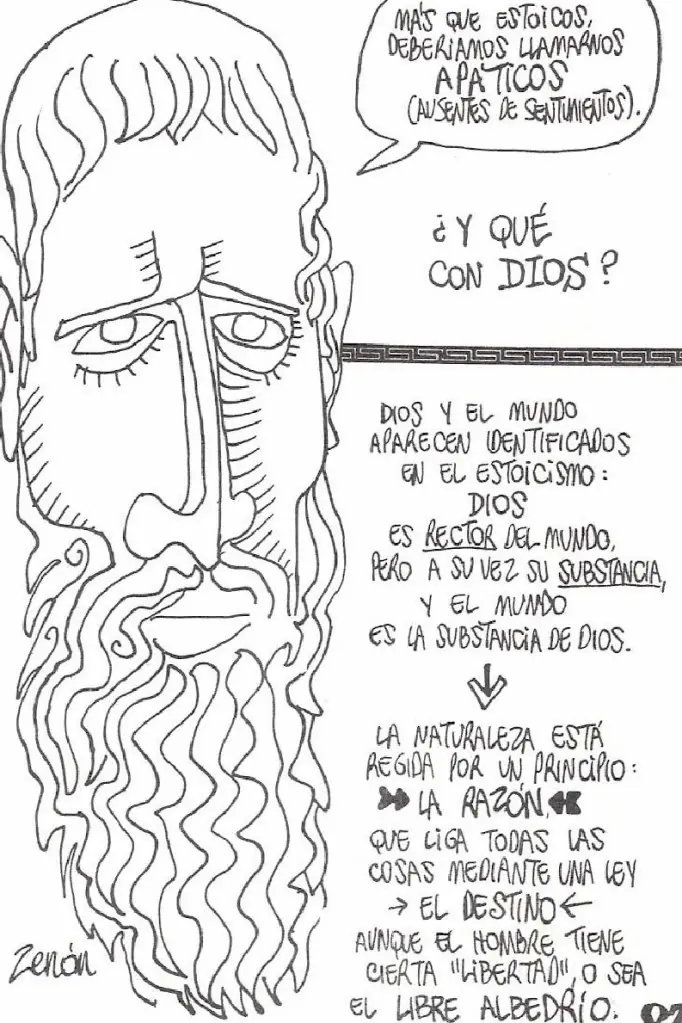 MÁS QUE ESTOICOS,
DEBERIAMOS LLAMARNOS
APÁTICOS
(AUSENTES DE SENTIMIENTOS).
¿Y QUÉ
CON DIOS?
DIOS Y EL MUNDO
APARECEN IDENTIFICADOS
EN EL ESTOICISMO:
DIOS
ES RECTOR DEL MUNDO,
PERO A SU VEZ SU SUBSTANCIA,
Y EL MUNDO
ES LA SUBSTANCIA DE DIOS.
LA NATURALEZA ESTÁ
REGIDA POR UN PRINCIPIO:
LA RAZÓN,
QUE LIGA TODAS LAS
COSAS MEDIANTE UNA LEY
→ EL DESTINO ←
AUNQUE EL HOMBRE TIENE
CIERTA "LIBERTAD", O SEA
EL LIBRE ALBEDRÍO.
Zenón